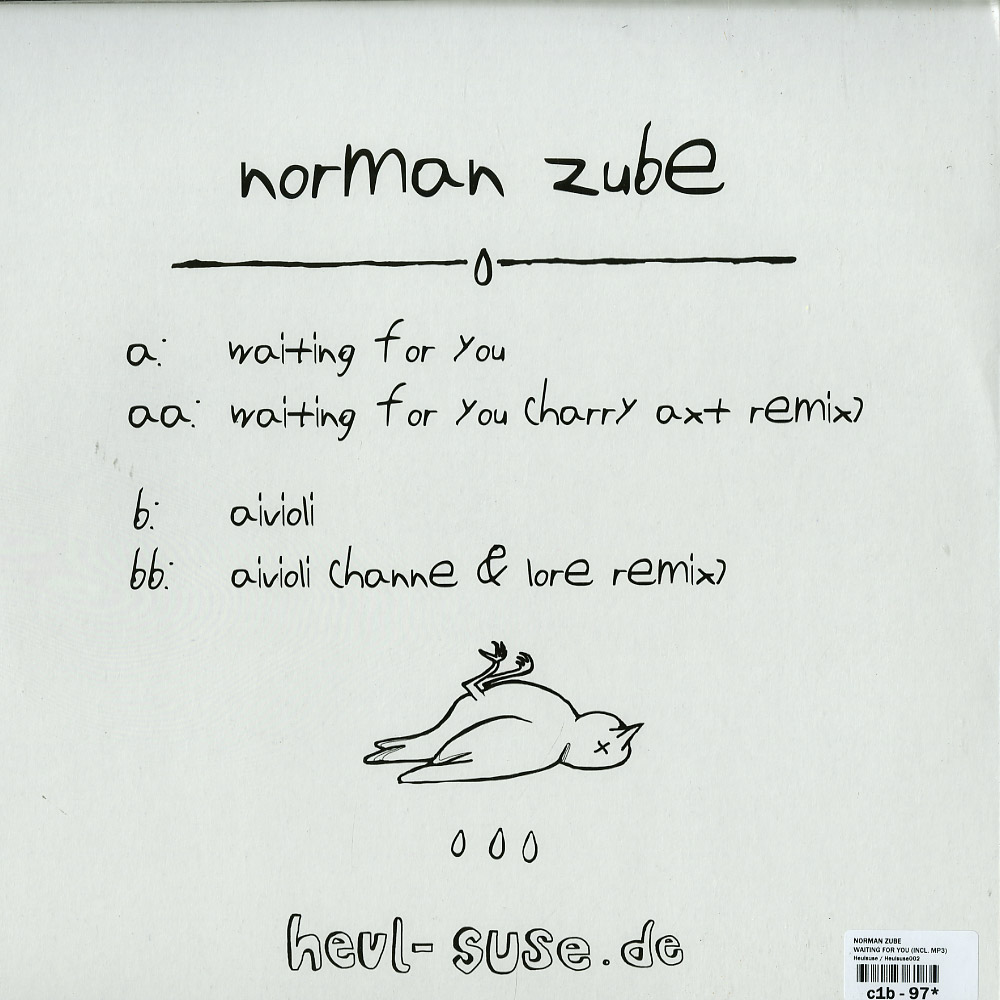 norman zube
a: waiting for you
aa: waiting for you (harry axt remix)
b: aivioli
bb: aivioli (hanne & lore remix)
heul-suse.de
NORMAN ZUBE
WAITING FOR YOU (INCL. MP3)
Heulsuse / Heulsuse002
c1b - 97*